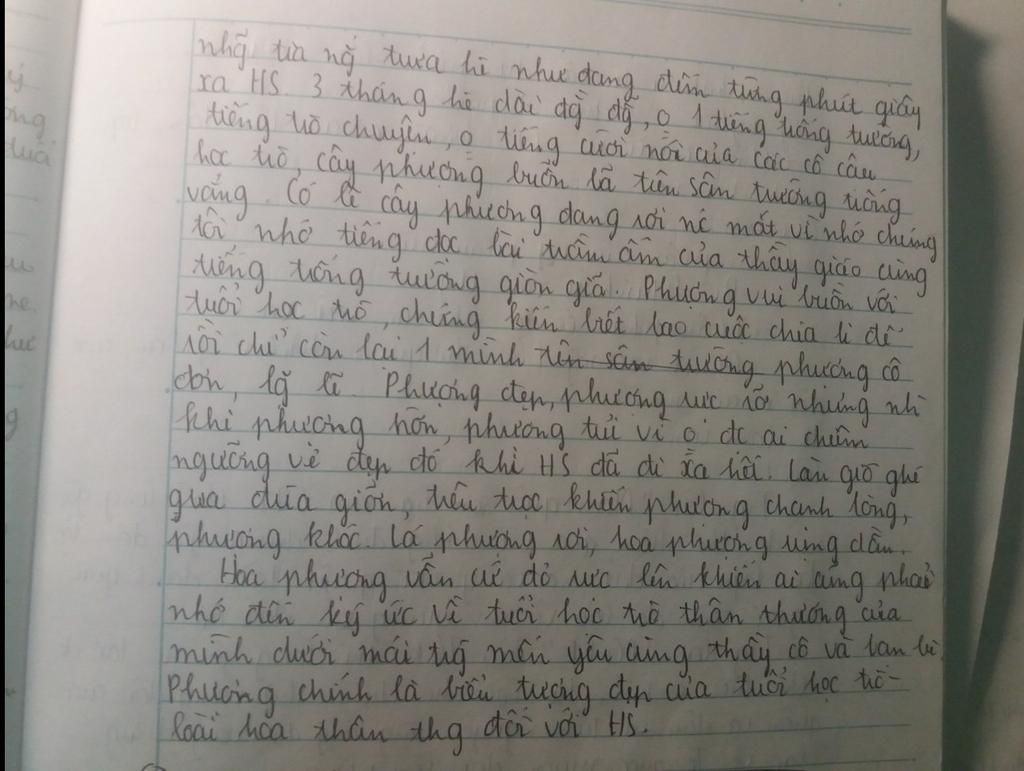 nhg tia ng trưa hè như đang đếm từng phút giây
xa HS. 3 tháng hè dài đg đẵ, o 1 tiếng trống trường,
tiếng trò chuyện, o tiếng cười nói của các cô cậu
học trò, cây phượng buồn lả trên sân trường trống
vắng. Có lẽ cây phượng đang rơi nc mắt vì nhớ chúng
tôi nhớ tiếng đọc bài trầm ấm của thầy giáo cùng
tiếng trống trường giòn giã. Phượng vui buồn với
tuổi học trò, chứng kiến biết bao cuộc chia li để
rồi chỉ còn lại 1 mình trên sân trường phượng cô
đơn, lg lẽ. Phượng đẹp, phượng rực rỡ nhưng nh
khi phượng hờn, phượng tủi vì o đc ai chiêm
ngưỡng vẻ đẹp đó khi HS đã đi xa hết. Làn gió ghé
qua đùa giỡn, trêu trọc khiến phượng chạnh lòng,
phượng khóc. Lá phượng rơi, hoa phượng rụng dần.
Hoa phượng vẫn cứ đỏ rực lên khiến ai cũng phải
nhớ đến ký ức về tuổi học trò thân thương của
mình dưới mái trg mến yêu cùng thầy cô và bạn bè.
Phượng chính là biểu tượng đẹp của tuổi học trò-
loài hoa thân thg đối với HS.